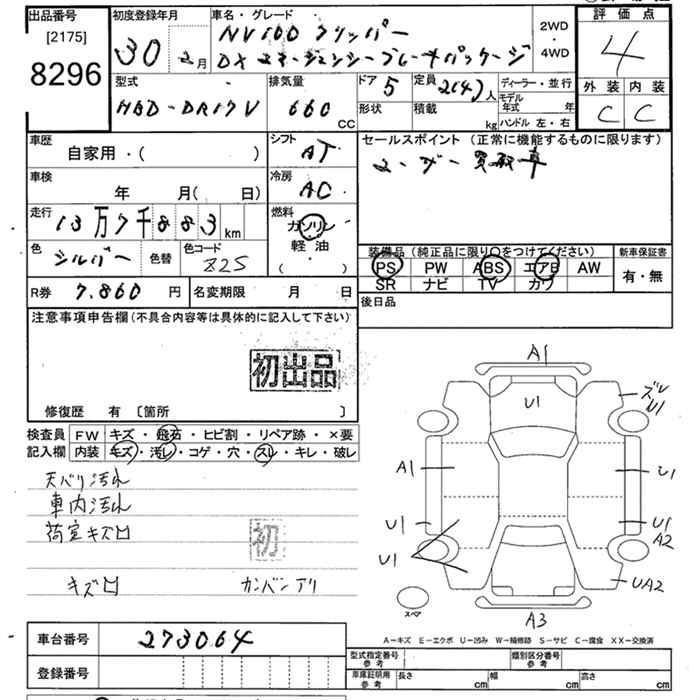 出品番号
[2175]
8296
初度登録年月
30 2月
車名・グレード
NV100 クリッパー
DX エマージェンシーブレーキパッケージ
2WD
・
4WD
評価点
4
外装 内装
C C
型式
HBD-DR17V
排気量
660
CC
ドア 5
形状
定員 2(4)人
積載
kg
ディーラー・並行
モデル年式 年
ハンドル 左・右
車歴
自家用・( )
シフト
AT
セールスポイント (正常に機能するものに限ります)
ユーザー買取車
車検
年 月( 日)
冷房
AC
走行
13万7千883km
燃料
ガソリン
軽油
( )
色
シルバー
色替
色コード
Z2S
装備品(純正品に限り○をつけてください)
PS PW ABS エアB AW
SR ナビ TV カワ
新車保証書
有・無
R券 7.860 円
名変期限 月 日
後日品
注意事項申告欄(不具合内容等は具体的に記入して下さい)
初出品
修復歴 有 〔箇所 〕
検査員
記入欄
FW キズ・飛石・ヒビ割・リペア跡・×要
内装 キズ・汚レ・コゲ・穴・スレ・キレ・破レ
天バリ汚れ
車内汚れ
荷室キズ凹
初
キズ凹 カンバンアリ
A1
U1
ズレ
U1
A1
U1
U1
U1
A2
U1
UA2
A3
スペア
A-キズ E-エクボ U-凹み W-補修跡 S-サビ C-腐食 XX-交換済
車台番号 273064
登録番号
型式指定番号
参考
類別区分番号
参考
車庫証明用
参考
長さ cm
幅 cm
高さ cm